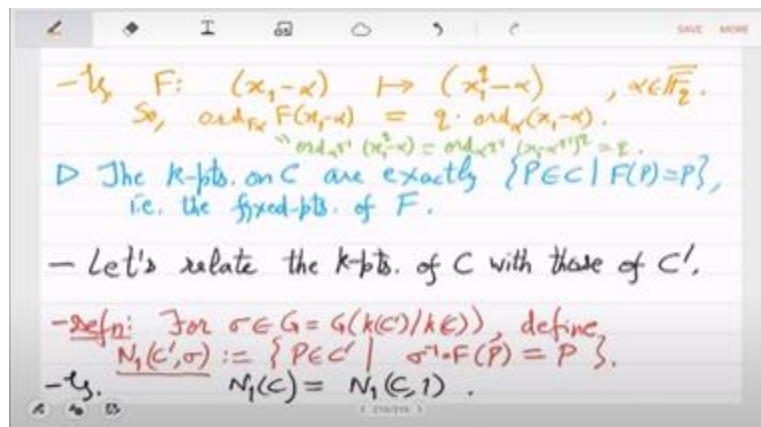 SAVE MORE
- Eg. F: (x₁-α) ↦ (x₁^q-α) , α∈F̅_q.
So, ord_Fα F(x₁-α) = q · ord_α(x₁-α).
"ord_α^q⁻¹ (x₁^q-α) = ord_α^q⁻¹ (x₁-α^q⁻¹)^q = q.
▷ The k-pts. on C are exactly {P∈C | F(P)=P},
i.e. the fixed-pts. of F.
- Let's relate the k-pts. of C with those of C'.
-Defn: For σ∈G = G(k(C')/k(C)), define
N₁(C',σ) := {P∈C' | σ⁻¹∘F(P) = P}.
-Eg. N₁(C) = N₁(C,1) .